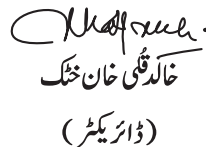 خالد قلی خان خٹک
(ڈائریکٹر)